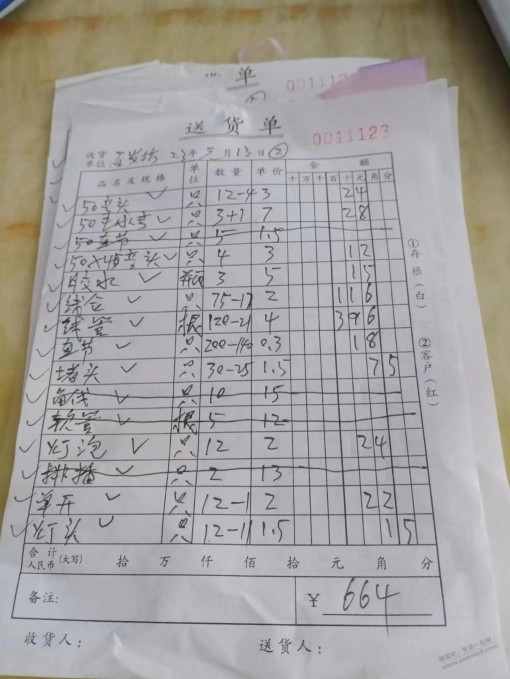 单
0011122
送货单
0011123
收货单位: 23年5月13日②
品名及规格 单位 数量 单价 金额
十万千百十元角分
50弯头 只 12-4 3 24
50存水弯 只 3+1 7 28
50直节 只 5 1.5
50×45弯头 只 4 3 12
胶水 瓶 3 5 15
线合 只 75-17 2 116
线管 根 120-21 4 396
直节 只 200-140 0.3 18
堵头 只 30-25 1.5 75
角线 只 10 15
软管 根 5 12
灯泡 只 12 2 24
排插 只 2 13
单开 只 12-1 2 22
灯头 只 12-11 1.5 15
合计人民币(大写) 拾 万 仟 佰 拾 元 角 分
备注: ¥ 664
收货人: 送货人:
①存根(白)
②客户(红)